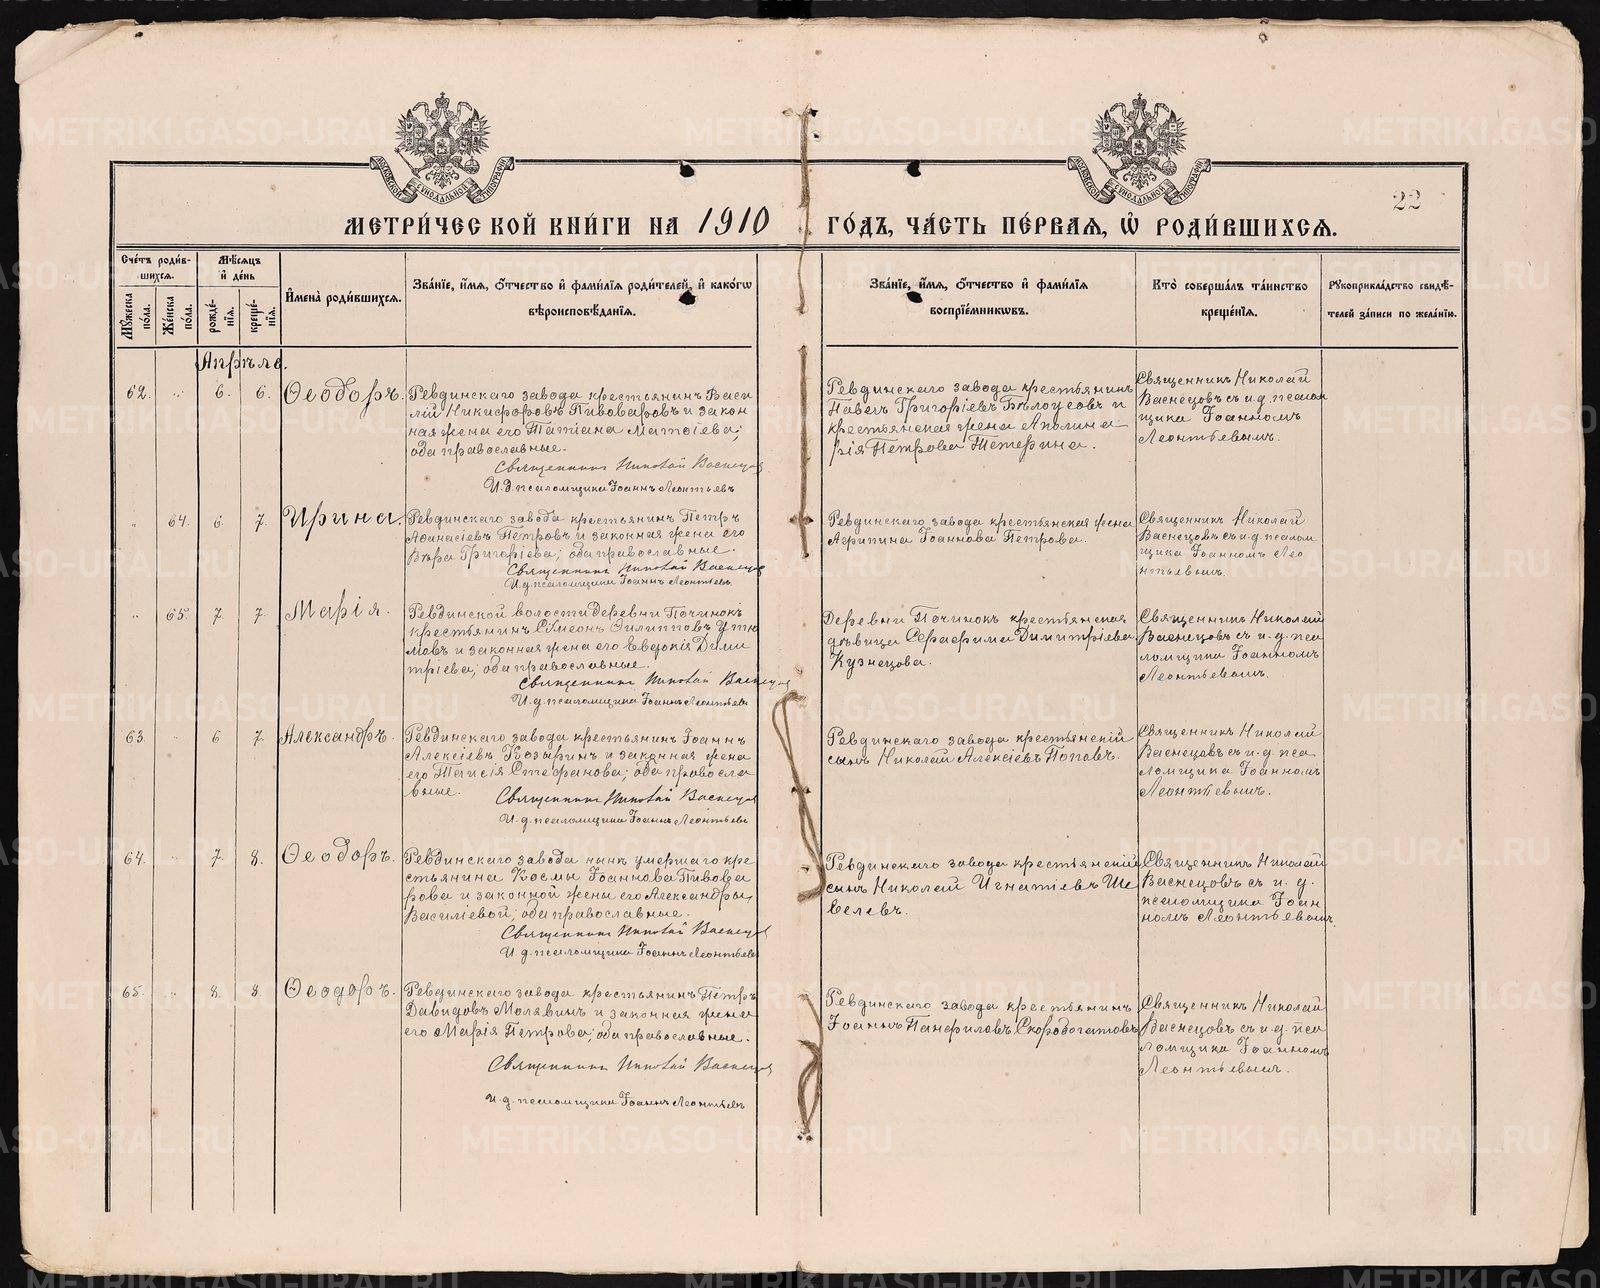 22
МЕТРИ́ЧЕСКОЙ КНИ́ГИ НА 1910 ГО́ДЪ, ЧА́СТЬ ПЕ́РВАЯ, Ѡ҆ РОДИ́ВШИХСЯ.
МОСКОВСКОЙ СѴНОДАЛЬНОЙ ТИПОГРАФІИ
МОСКОВСКОЙ СѴНОДАЛЬНОЙ ТИПОГРАФІИ
Сче́тъ роди́в-
шихся.
Мꙋ́жеска по́ла.
Же́нска по́ла.
Мѣ́сяцъ
и҆ де́нь
рожде́-
нїя.
креще́-
нїя.
И҆мена̀ роди́вшихся.
Зва́нїе, и҆́мя, ѻ҆́тчество и҆ фами́лїя роди́телей, и҆ како́гѡ
вѣроисповѣ́данїя.
Зва́нїе, и҆́мя, ѻ҆́тчество и҆ фами́лїя
воспрїе́мникѡвъ.
Кто̀ соверша́лъ та́инство
креще́нїя.
Рꙋкоприкла́дство свидѣ́-
телей за́писи по жела́нїю.
Апрѣль.
62. „ 6. 6. Ѳеодоръ.
Ревдинскаго завода крестьянинъ Васи
лій Никифоровъ Пивоваровъ и закон
ная жена его Татіана Матѳіева;
оба православные.
Священникъ Николай Васнецов
И. д. псаломщика Іоаннъ Леонтьевъ
Ревдинскаго завода крестьянинъ
Павелъ Григоріевъ Бѣлоусовъ и
крестьянская жена Аполина
рія Петрова Тетерина.
Священникъ Николай
Васнецовъ съ и.д. псалом
щика Іоанномъ
Леонтьевымъ.
„ 64. 6. 7. Ирина.
Ревдинскаго завода крестьянинъ Петръ
Аѳанасіевъ Петровъ и законная жена его
Вѣра Григоріева; оба православные.
Священникъ Николай Васнецов
И. д. псаломщика Іоаннъ Леонтьевъ
Ревдинскаго завода крестьянская жена
Агрипина Іоаннова Петрова.
Священникъ Николай
Васнецовъ съ и.д. псалом
щика Іоанномъ Лео
нтьевымъ.
„ 65. 7. 7. Марія.
Ревдинской волости Деревни Починокъ
крестьянинъ Сѷмеонъ Филипповъ Утю
мовъ и законная жена его Евдокія Дими
тріева; оба православные.
Священникъ Николай Васнецов
И. д. псаломщика Іоаннъ Леонтьевъ
Деревни Починокъ крестьянская
дѣвица Серафима Димитріева
Кузнецова.
Священникъ Николай
Васнецовъ съ и. д. пса
ломщика Іоанномъ
Леонтьевымъ.
63 „ 6 7. Александръ.
Ревдинскаго завода крестьянинъ Іоаннъ
Алексіевъ Козаринъ и законная жена
его Таисія Стефанова; оба правосла
вные.
Священникъ Николай Васнецов
И. д. псаломщика Іоаннъ Леонтьевъ
Ревдинскаго завода крестьянскій
сынъ Николай Алексіевъ Поповъ.
Священникъ Николай
Васнецовъ съ и. д. пса
ломщика Іоанномъ
Леонтьевымъ.
64. „ 7. 8. Ѳеодоръ.
Ревдинскаго завода нынѣ умершаго кре
стьянина Космы Іоаннова Пивова
рова и законной жены его Александры
Василіевой; оба православные.
Священникъ Николай Васнецов
И. д. псаломщика Іоаннъ Леонтьевъ
Ревдинскаго завода крестьянскій
сынъ Николай Игнатіевъ Ше
велевъ.
Священникъ Николай
Васнецовъ съ и. д.
псаломщика Іоан
номъ Леонтьевымъ.
65. „ 8. 8. Ѳеодоръ.
Ревдинскаго завода крестьянинъ Петръ
Давидовъ Молявинъ и законная жена
его Марія Петрова; оба православные.
Священникъ Николай Васнецов
И. д. псаломщика Іоаннъ Леонтьевъ
Ревдинскаго завода крестьянинъ
Іоаннъ Панфиловъ Скоробогатовъ
Священникъ Николай
Васнецовъ съ и. д. пса
ломщика Іоанномъ
Леонтьевымъ.
METRIKI.GASO-URAL.RU